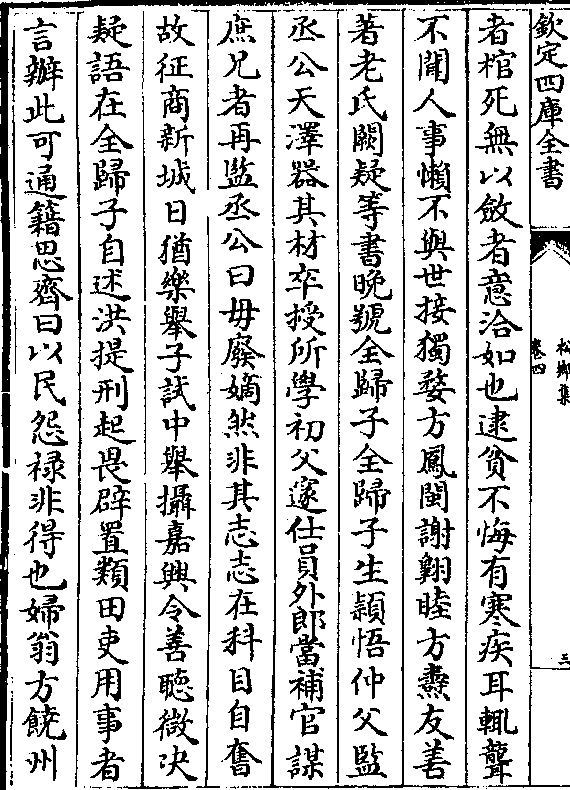 欽定四庫全書
松鄉集
卷四
三
者棺死無以斂者意洽如也逮貧不悔有寒疾耳輒聾
不聞人事懶不與世接獨婺方鳳閩謝翺睦方燾友善
著老氏闕疑等書晚號全歸子全歸子生穎悟仲父監
丞公天澤器其材卒授所學初父遂仕員外郎當補官謀
庶兄者再監丞公曰毋廢嫡然非其志志在科目自奮
故征商新城日猶樂舉子試中舉攝嘉興令善聽微决
疑語在全歸子自述洪提刑起畏辟置類田吏用事者
言辦此可通籍思齊曰以民怨祿非得也婦翁方饒州